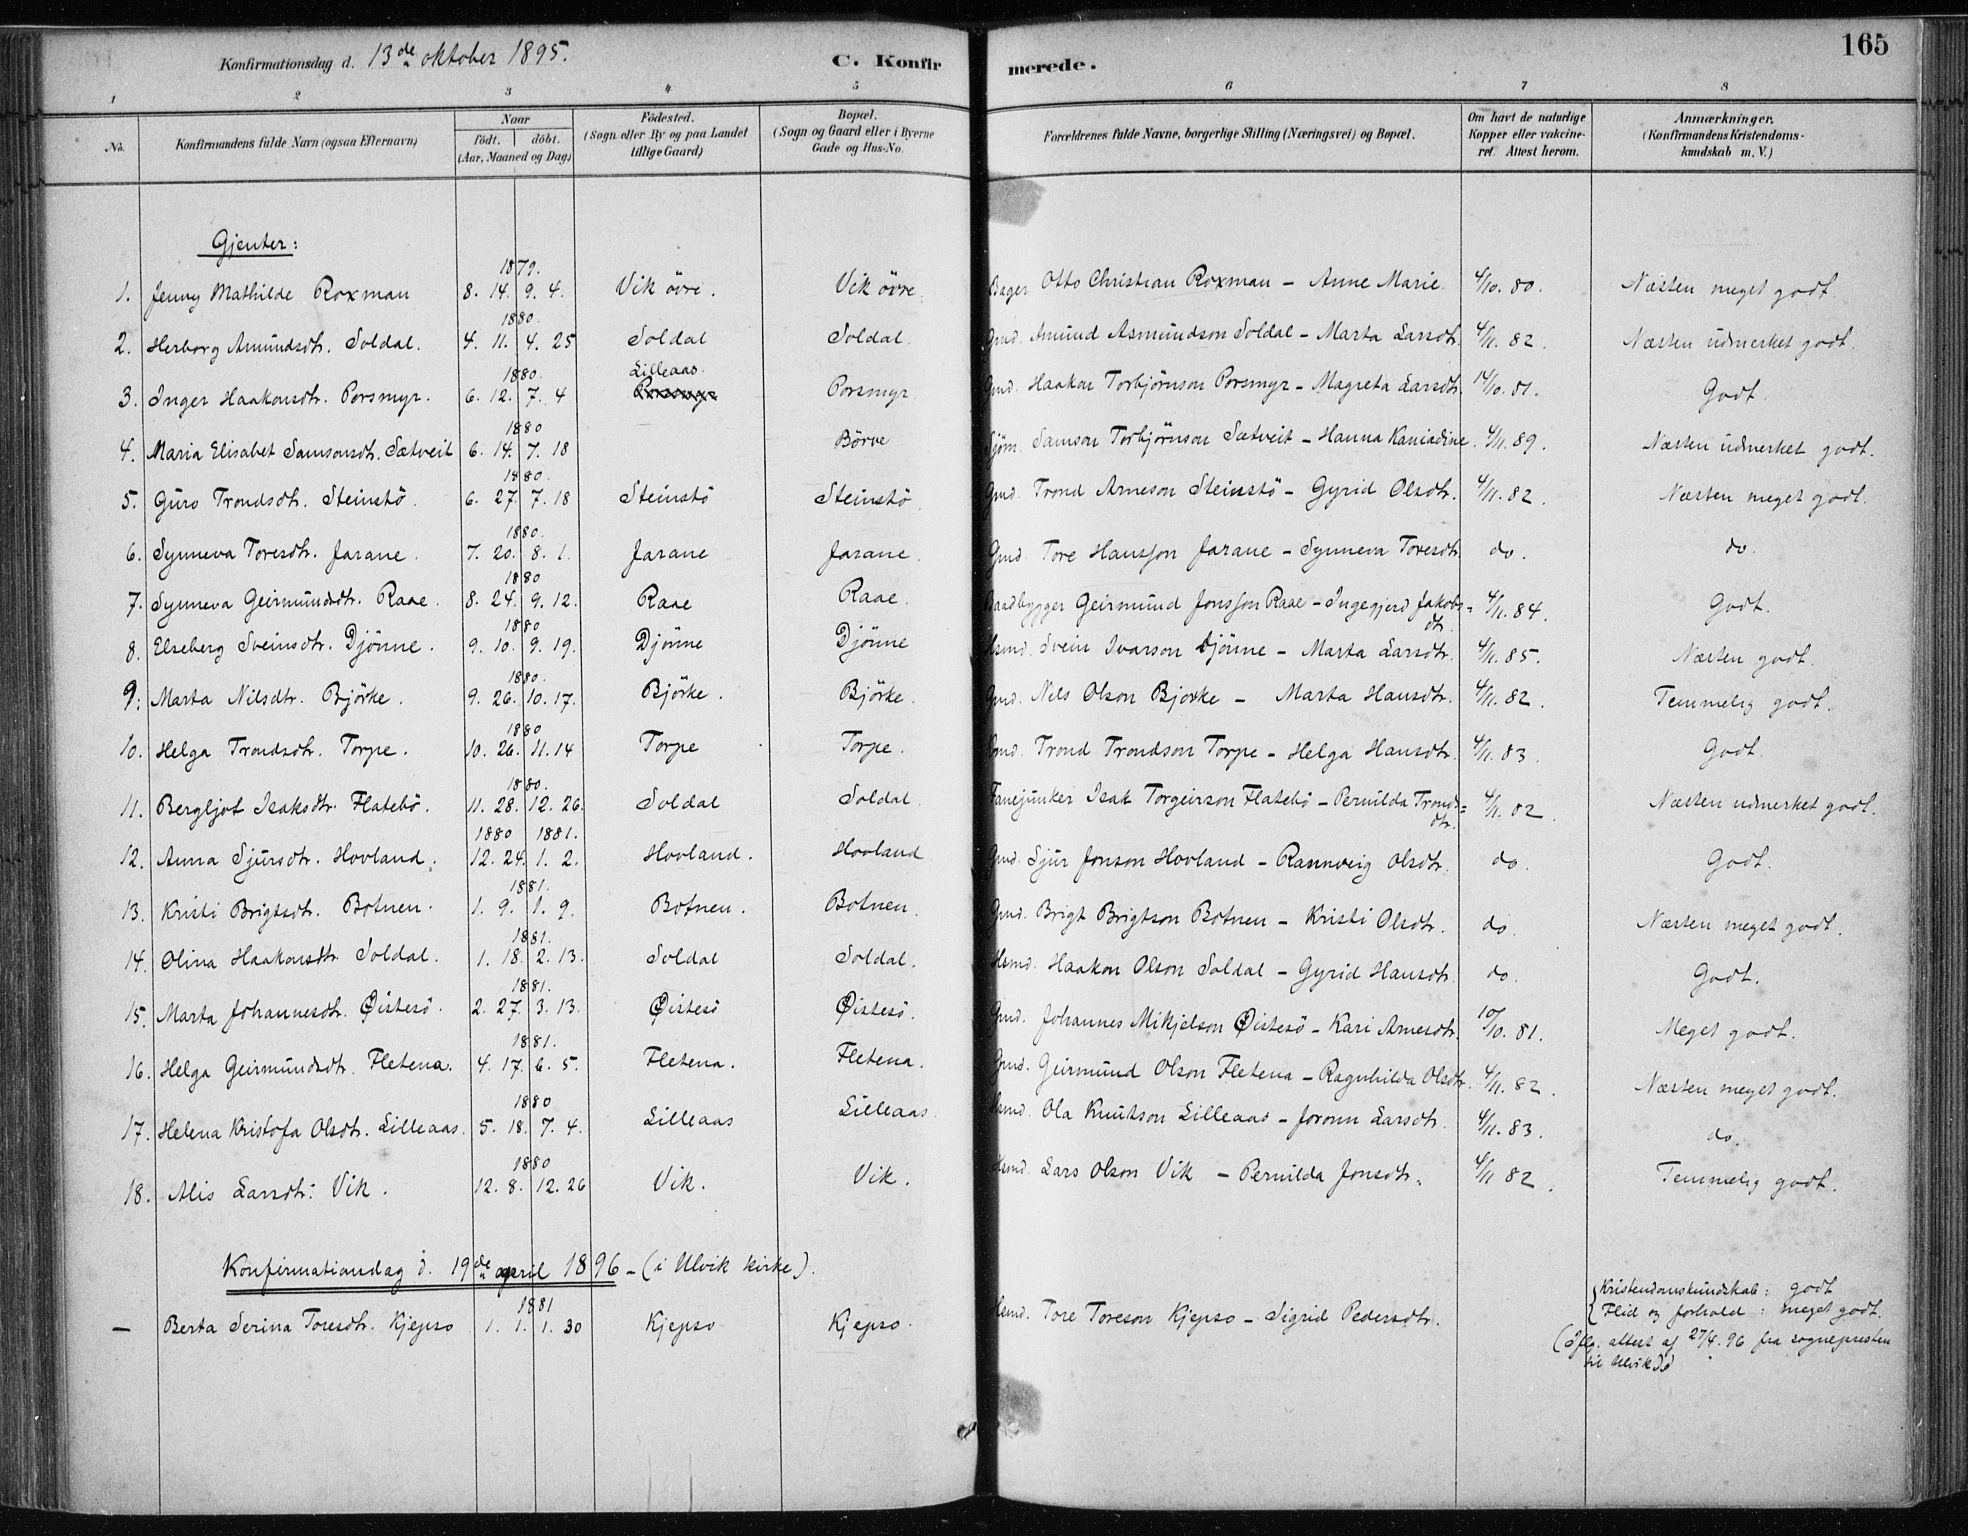 Konfirmationsdag d. 13de oktober 1895.
C. Konfirmerede.
165
1 2 3 4 5 6 7 8
No.
Konfirmandens fulde Navn (ogsaa Efternavn)
Naar
födt. döbt.
(Aar, Maaned og Dag)
Födested.
(Sogn eller By og paa Landet
tillige Gaard)
Bopæl.
(Sogn og Gaard eller i Byerne
Gade og Hus-No.
Forældrenes fulde Navne, borgerlige Stilling (Næringsvei) og Bopæl.
Om havt de naturlige
Kopper eller vakcine-
ret. Attest herom.
Anmærkninger.
(Konfirmandens Kristendoms-
kundskab m. V.)
Gjenter:
1879.
1. Jenny Mathilde Roxman 8. 14. 9. 4. Vik övre. Vik övre. Bager Otto Christian Roxman – Anne Marie 4/10. 80. Næsten meget godt.
1880.
2. Herborg Amundsdtr. Soldal. 4. 11. 4. 25 Soldal Soldal. Gmd. Amund Asmundson Soldal – Marta Larsdtr. 4/11. 82. Næsten udmerket godt.
1880. Lilleaas.
3. Inger Haakonsdtr. Porsmyr. 6. 12. 7. 4 Porsmyr Porsmyr Gmd. Haakon Torbjørnson Porsmyr – Magreta Larsdtr. 14/10. 81. Godt.
1880
4. Maria Elisabet Samsonsdt. Sætveit 6. 14. 7. 18 Börve Sjöm. Samson Torbjørnson Sætveit – Hanna Kaniadine. 4/11. 89. Næsten udmerket godt.
1880.
5. Guro Trondsdtr. Steinstö. 6. 27. 7. 18 Steinstö Steinstö Gmd. Trond Arneson Steinstö – Gyrid Olsdtr. 4/11. 82. Næsten meget godt.
1880.
6. Synneva Toresdtr. Jarane. 7. 20. 8. 1. Jarane Jarane. Gmd. Tore Hansson Jarane – Synneva Toresdtr. do. do.
1880
7. Synneva Geirmundsdtr. Raae. 8. 24. 9. 12. Raae Raae. Baadbygger Geirmund Jonsson Raae – Ingegjerd Jakobs= 4/11. 84. Godt.
dtr.
1880
8. Elseberg Sveinsdtr. Djönne. 9. 10. 9. 19. Djönne Djönne Hsmd. Svein Ivarson Djönne – Marta Larsdtr. 4/11. 85. Næsten godt.
1880.
9. Marta Nilsdtr. Bjørke. 9. 26. 10. 17. Björke. Björke. Gmd. Nils Olson Bjorke – Marta Hansdtr. 4/11. 82. Temmelig godt.
1880
10. Helga Trondsdtr. Torpe. 10. 26. 11. 14 Torpe Torpe. Gmd. Trond Trondson Torpe – Helga Hansdtr. 4/11. 83. Godt.
1880.
11. Bergljot Isaksdtr. Flatebö. 11. 28. 12. 26. Soldal Soldal. Fanejunker Isak Torgeirson Flatebö – Pernilda Tronds= 4/11. 82. Næsten udmerket godt.
dtr.
1880 1881.
12. Anna Sjursdtr. Hovland. 12. 24. 1. 2. Hovland. Hovland. Gmd. Sjur Jonson Hovland – Rannveig Olsdtr. do. Godt.
1881.
13. Kristi Brigtsdtr. Botnen. 1. 9. 1. 9. Botnen. Botnen. Gmd. Brigt Brigtson Botnen – Kristi Olsdtr. do. Næsten meget godt.
1881.
14. Olina Haakonsdtr. Soldal. 1. 18. 2. 13. Soldal Soldal. Hsmd. Haakon Olson Soldal – Gyrid Hansdtr. do. Godt.
1881.
15. Marta Johannesdtr. Øistesö. 2. 27. 3. 13. Øistesö Øistesö. Gmd. Johannes Mikjelson Øistesö – Kari Arnesdtr. 10/10. 81. Meget godt.
1881.
16. Helga Geirmundsdtr. Fletena. 4. 17. 6. 5. Fletena. Fletena. Gmd. Geirmund Olson Fletena – Ragnhilda Olsdtr. 4/11. 82. Næsten meget godt.
1880
17. Helena Kristofa Olsdtr. Lilleaas. 5. 18. 7. 4. Lilleaas Lilleaas. Hsmd. Ola Knutson Lilleaas – Joronn Larsdtr. 4/11. 83. do.
1880
18. Alis Larsdtr. Vik. 12. 8. 12. 26 Vik. Vik. Hsmd. Lars Olson Vik – Pernilda Jonsdtr. 4/11 82. Temmelig godt.
Konfirmationdag d. 19de april 1896 – (i Ulvik kirke).
1881
– Berta Serina Toresdtr. Kjepso 1. 1. 1. 30 Kjepso Kjepso. Hsmd. Tore Toreson Kjepso – Sigrid Pedersdtr.
Kristendomskundskab: godt
Flid og forhold: meget godt.
(Iflg. attest af 27/4. 96 fra sognepresten
til Ulvik)